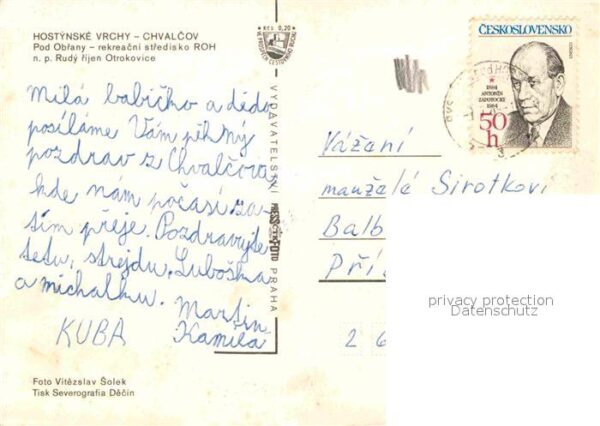 HOSTÝNSKÉ VRCHY – CHVALČOV
Pod Obřany – rekreační středisko ROH
n. p. Rudý říjen Otrokovice
Kčs 0,20
Milá babičko a dědo
posíláme Vám pěkný
pozdrav z Chvalčova
kde nám počasí za-
tím přeje. Pozdravujte
tetu, strejdu, Luboška
a michalku. Martin
KUBA Kamila
Foto Vítězslav Šolek
Tisk Severografia Děčín
VYDAVATELSTVÍ
PRESSFOTO
PRAHA
ČESKOSLOVENSKO
1884
ANTONÍN
ZÁPOTOCKÝ
1984
50
h
Vážení
manželé Sirotkovi
Balb
Pří
2 6
privacy protection
Datenschutz